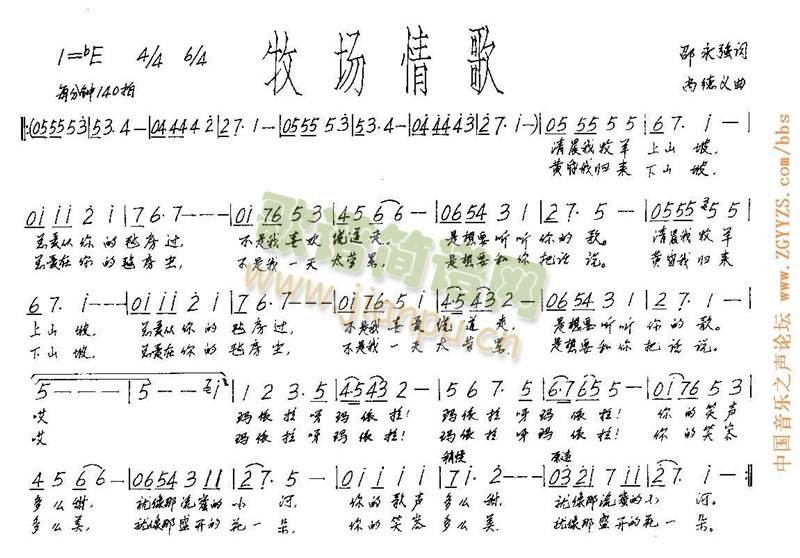 牧场情歌
1=♭E 4/4 6/4
每分钟140拍
邵永强词
尚德义曲
‖:(05555 53|53.4—|04444 42|27.1—|05555 53|53.4—|04444 43|27.1—)|05 55 5 5|67.1—|
清晨我牧羊 上山坡,
黄昏我归来 下山坡,
01 11 2 1|76.7———|01 76 5 3|45 6 6—|0654 3 1|27.5—|0555 5 5|
总爱从你的毡房过, 不是我喜欢绕道走, 是想要听听你的歌。 清晨我牧羊
总爱在你的毡房坐, 不是我一天太劳累, 是想要和你把话说。 黄昏我归来
67.1—|01 11 2 1|76.7———|01 76 5 1|45 43 2—|0654 3 1|27.1—|
上山坡, 总爱从你的毡房过, 不是我喜爱绕道走, 是想要听听你的歌。
下山坡, 总爱在你的毡房坐, 不是我一天太劳累, 是想要和你把话说。
5———|5——1|1 2 3.5|45 43 2—|5 6 7.5|6.765 5—|01 76 5 3|
哎 玛依拉呀玛依拉! 玛依拉呀玛依拉! 你的笑声
哎 玛依拉呀玛依拉! 玛依拉呀玛依拉! 你的笑容
稍慢 原速
4 5 6 6—|0654 3 11|27.5—|01 11 1 1|71.2——|03 21 7 11|27.1—|
多么甜, 就像那流蜜的小河, 你的歌声多么甜, 就像那流蜜的小河。
多么美, 就像那盛开的花一朵, 你的笑容多么美, 就像那盛开的花一朵。
歌谱简谱网
www.jianpu.cn
中国音乐之声论坛 www.ZGYYZS.com/bbs